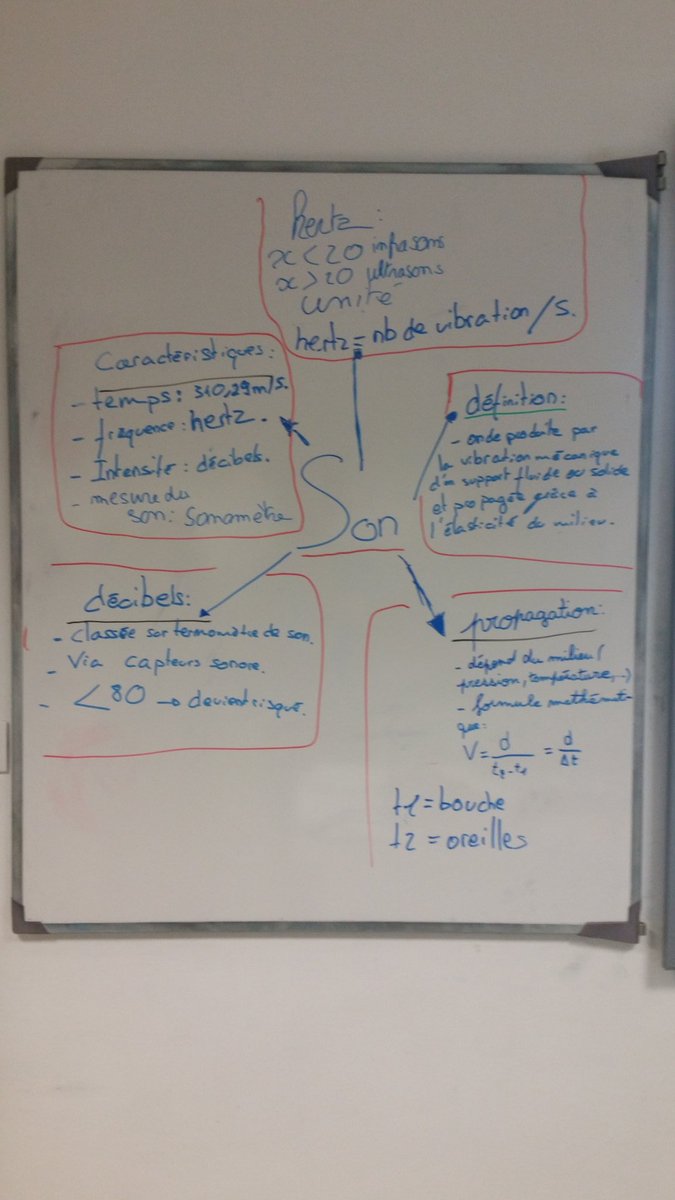 hertz :
x < 20 infrasons
x > 20 ultrasons
unité
hertz = nb de vibration / s.
Caractéristiques :
- temps : 340,29 m/s.
- fréquence : hertz.
- Intensite : décibels.
- mesure du
son : Sonomètre
définition :
- onde produite par
la vibration mécanique
d'un support fluide ou solide
et propagée grâce à
l'élasticité du milieu.
Son
décibels :
- Classée sur termomètre de son.
- Via capteurs sonore.
- < 80 → devient risqué.
propagation :
- dépend du milieu (
pression, température, ..)
- formule mathémat-
que :
V = d / t2 - t1 = d / Δt
t1 = bouche
t2 = oreilles